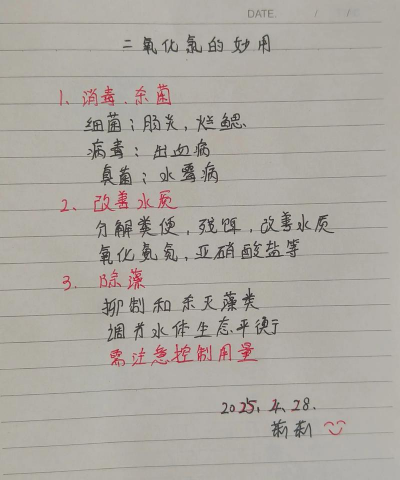 DATE. / /
二氧化氯的妙用
1、消毒、杀菌
细菌：肠炎，烂鳃
病毒：出血病
真菌：水霉病
2、改善水质
分解粪便，残饵，改善水质
氧化氨氮，亚硝酸盐等
3、除藻
抑制和杀灭藻类
调节水体生态平衡
需注意控制用量
2025.4.28.